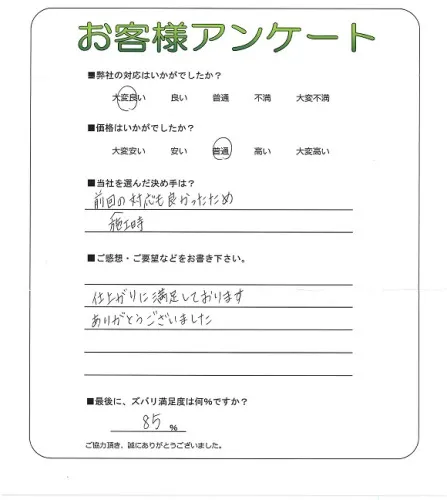 お客様アンケート
■弊社の対応はいかがでしたか？
大変良い 良い 普通 不満 大変不満
■価格はいかがでしたか？
大変安い 安い 普通 高い 大変高い
■当社を選んだ決め手は？
前回の対応も良かったため
施工時
■ご感想・ご要望などをお書き下さい。
仕上がりに満足しております
ありがとうございました
■最後に、ズバリ満足度は何%ですか？
85 %
ご協力頂き、誠にありがとうございました。